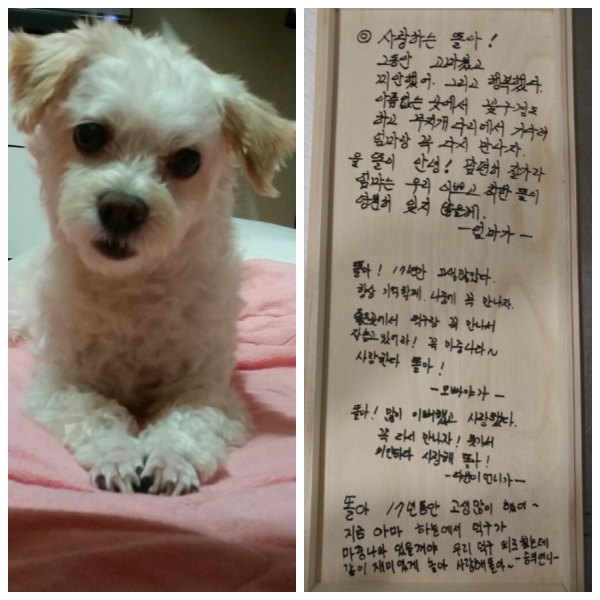 ◎ 사랑하는 똘아!
그동안 고마웠고
미안했어. 그리고 행복했다.
아픔없는 곳에서 꽃구경도
하고 무지개 다리에서 기다려
엄마랑 꼭 다시 만나자.
울 똘이 안녕! 편히 잘가라
엄마는 우리 이쁘고 착한 똘이
영원히 잊지 않을게.
-엄마가-
똘아! 17년동안 고생많았다.
항상 기억할께. 나중에 꼭 만나자.
좋은곳에서 덕구랑 꼭 만나서
잘놀고있어라! 꼭 마중나와~
사랑한다 똘아!
-오빠야가-
똘아! 많이 이뻐했고 사랑했다.
꼭 다시 만나자!
미안하다 사랑해 똘아!
언니가-
똘아 17년동안 고생많이 했어~
지금 아마 하늘에서 덕구가
마중나와 있을꺼야 우리 덕구 외로웠는데
같이 재미있게 놀아 사랑해똘아~